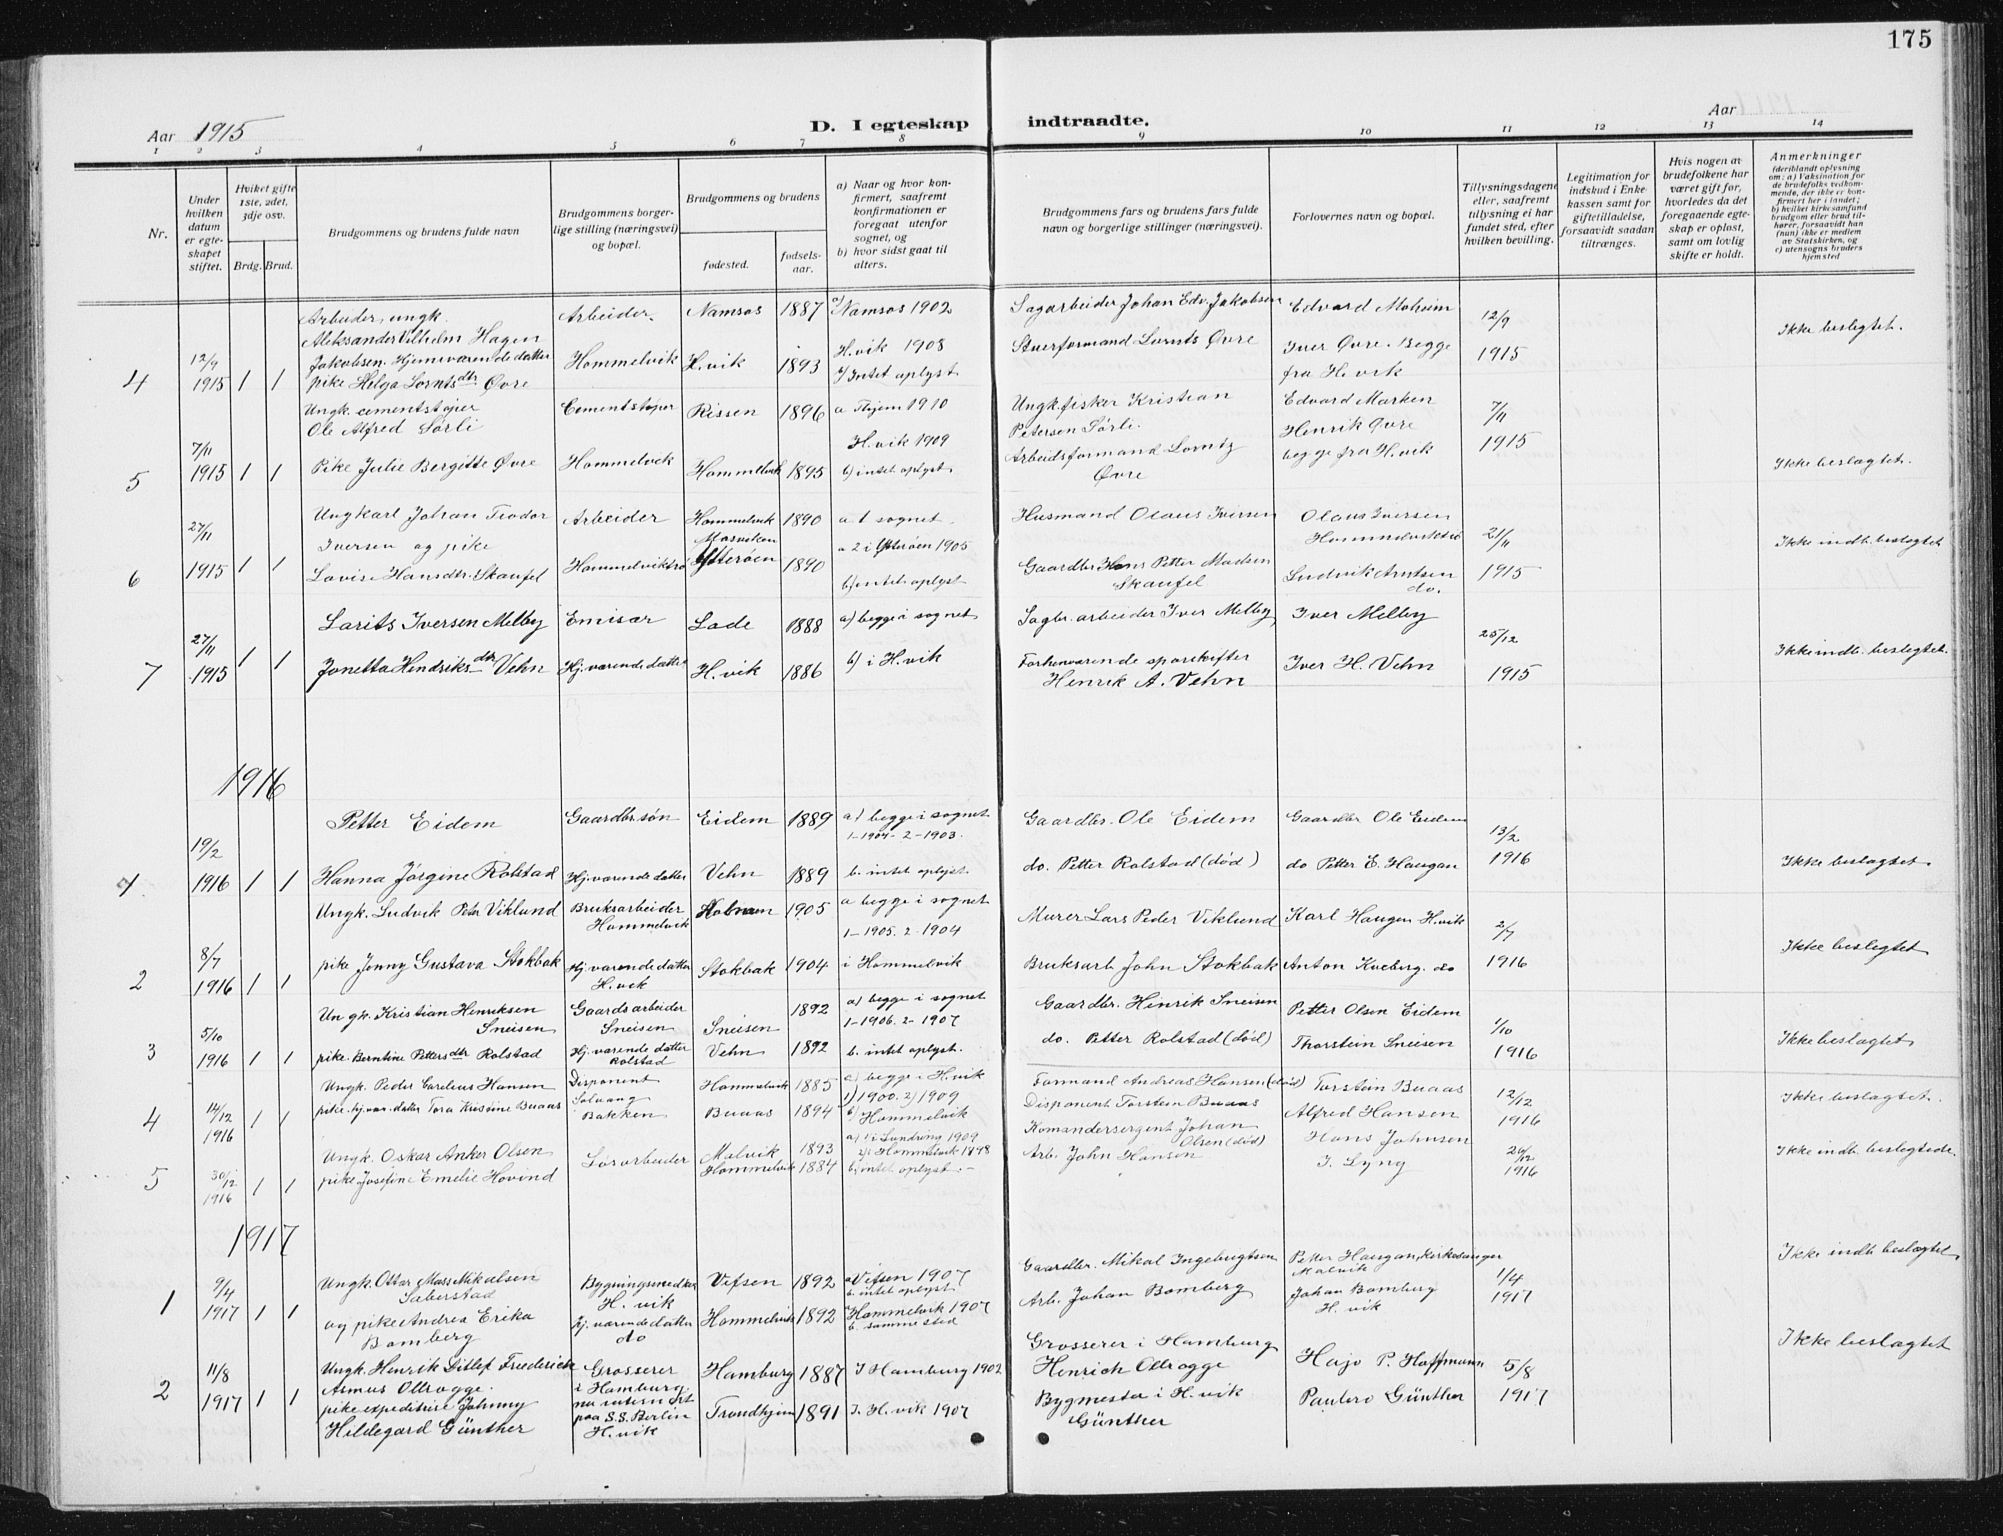 175
Aar 1915
D. I egteskap indtraadte.
Aar
1 2 3 4 5 6 7 8 9 10 11 12 13 14
Nr.
Under hvilken datum er egte-skapet stiftet.
Hvilket gifte 1ste, 2det, 3dje osv.
Brdg. Brud.
Brudgommens og brudens fulde navn
Brudgommens borger-lige stilling (næringsvei) og bopæl.
Brudgommens og brudens
fødested.
fødsels-aar.
a) Naar og hvor kon-firmert, saafremt konfirmationen er foregaat utenfor sognet, og
b) hvor sidst gaat til alters.
Brudgommens fars og brudens fars fulde navn og borgerlige stillinger (næringsvei).
Forlovernes navn og bopæl.
Tillysningsdagene eller, saafremt tillysning ei har fundet sted, efter hvilken bevilling.
Legitimation for indskud i Enke-kassen samt for giftetilladelse, forsaavidt saadan tiltrænges.
Hvis nogen av brudefolkene har været gift før, hvorledes da det foregaaende egte-skap er opløst, samt om lovlig skifte er holdt.
Anmerkninger
(deriblandt oplysning om: a) Vaksination for de brudefolks vedkom-mende, der ikke er kon-firmert her i landet; b) hvilket kirkesamfund brudgom eller brud til-hører, forsaavidt han (hun) ikke er medlem av Statskirken, og c) utensogns bruders hjemsted
4 12/9 1915 1 1
Arbeider, ungk.
Aleksander Vilhelm Hagen
Jakobsen. Hjemværende datter
pike Helga Lorntsdtr Øvre
Arbeider.
Hommelvik
Namsos 1887
H.vik 1893
a) Namsos 1902
H.vik 1908
b) Intet oplyst
Sagarbeider Johan Edv. Jakobsen
Stuerformand Lornts Øvre
Edvard Moheim
Iver Øvre. Begge
fra H.vik
12/9
1915
Ikke beslegtet.
5 7/11 1915 1 1
Ungk. cementstøper
Ole Alfred Sørli
Pike Julie Bergitte Øvre
Cementstøper
Hommelvik
Rissen 1896
Hommelvik 1895
H.vik 1909
b) intet oplyst
Ungk. fisker Kristian
Petersen Sørli.
Arbeidsformand Lorntz
Øvre
Edvard Marken
Henrik Øvre
begge fra H.vik
7/11
1915
Ikke beslægtet.
6 27/11 1915 1 1
Ungkarl Johan Teodor
Iversen og pike
Lovise Hansdtr. Skaufel
Arbeider
Hommelvik 1890
Mosviken
Ytterøen 1890
a. 1 sognet.
a 2 i Ytterøen 1905
b) intet oplyst
Husmand Olaus Iversen
Gaardbr Hans Petter Madsen
Skaufel
Olaus Iversen
Ludvik Arntsen
do.
21/11
1915
Ikke indb. beslægtet
7 27/11 1915 1 1
Larits Iversen Melby
Jonetta Hendriksdtr Vehn
Emisær
Hj. værende datter
Lade 1888
H.vik 1886
a) begge i sognet
b) i H.vik
Sagbr. arbeider Iver Melby
Forhenværende sporskifter
Henrik A. Vehn
Iver Melby
Iver H. Vehn
25/12
1915
Ikke indb. beslegtet.
1916
1 19/2 1916 1 1
Petter Eidem
Hanna Jørgine Rolstad
Gaardbr.søn
Hj. værende datter
Eidem 1889
Vehn 1889
a) begge i sognet
1-1904-2-1903.
b. intet oplyst.
Gaardbr. Ole Eidem
do. Petter Rolstad (død)
Gaardbr Ole Eidem
do Petter E. Haugan
13/2
1916
Ikke beslægtet.
2 8/7 1916 1 1
Ungk. Ludvik Peter Viklund
pike Jenny Gustava Stokbak
Bruksarbeider
Hommelvik
Hj. værende datter
H.vik
1905
Stokbak 1904
a begge i sognet
1-1905. 2-1904
i Hommelvik
Murer Lars Peder Viklund
Bruksarb John Stokbak
Karl Haugen H.vik
Anton Kveberg. do
2/7
1916
Ikke beslegtet
3 5/10 1916 1 1
Ungk. Kristian Henriksen
Sneisen
pike. Berntine Pettersdtr Rolstad
Gaardsarbeider
Sneisen
Hj. værende datter
Rolstad
Sneisen 1892
Vehn 1892
a) begge i sognet
1-1906. 2-1907
b. intet oplyst.
Gaardbr. Henrik Sneisen
do. Petter Rolstad (død)
Petter Olsen Eidem
Thorstein Sneisen
1/10
1916
Ikke beslægtet
4 14/12 1916 1 1
Ungk. Peder Cornelius Hansen
pike. hj. vær. datter Tora Kristine Buaas
Disponent
Solvang
Bakken
Hommelvik 1885
Buaas 1894
a) begge i H.vik
1) 1900. 2) 1909
b) Hommelvik
Formand Andreas Hansen (død)
Disponent Torstein Buaas
Torstein Buaas
Alfred Hansen
12/12
1916
Ikke beslægtet.
5 30/12 1916 1 1
Ungk. Oskar Anker Olsen
pike Josefine Emelie Hovind
Løsarbeider
Malvik 1893
Hommelvik 1884
b. intet oplyst.
Komandersergent Johan
Olsen (død)
Arb. John Hansen
Hans Johnsen
J. Lyng
26/12
1916
Ikke indb. beslegtede.
1917
1 9/4 1917 1 1
Ungk. Ottar Mass Mikalsen
Saberstad
og pike Andrea Erika
Bomberg
Bygningssnedker
H. vik
Hj. værende datter
do
Vefsen 1892
Hommelvik 1892
a Vefsen 1907
b. intet oplyst
a Hommelvik 1907
b. samme sted
Gaardbr. Mikal Ingebrigtsen
Arb. Johan Bomberg
Petter Haugan, kirkesanger
Malvik
Johan Bomberg
H. vik
1/4
1917
Ikke indb. beslægtet
2 11/8 1917 1 1
Ungk. Henrik Ditlef Friederich
Asmus Ollrogge.
pike expeditrice Johnny
Hildegard Günther
Grosserer
i Hamburg
nu intern. At
paa S.S. Berlin
H.vik
Hamburg 1887
Trondhjem 1891
I Hamburg 1902
I. H.vik 1907
Grosserer i Hamburg
Henrich Ollrogge
Bygmester i H.vik
Günther
Hajo P. Hoffmann
Günther
5/8
1917
Ikke beslægtet